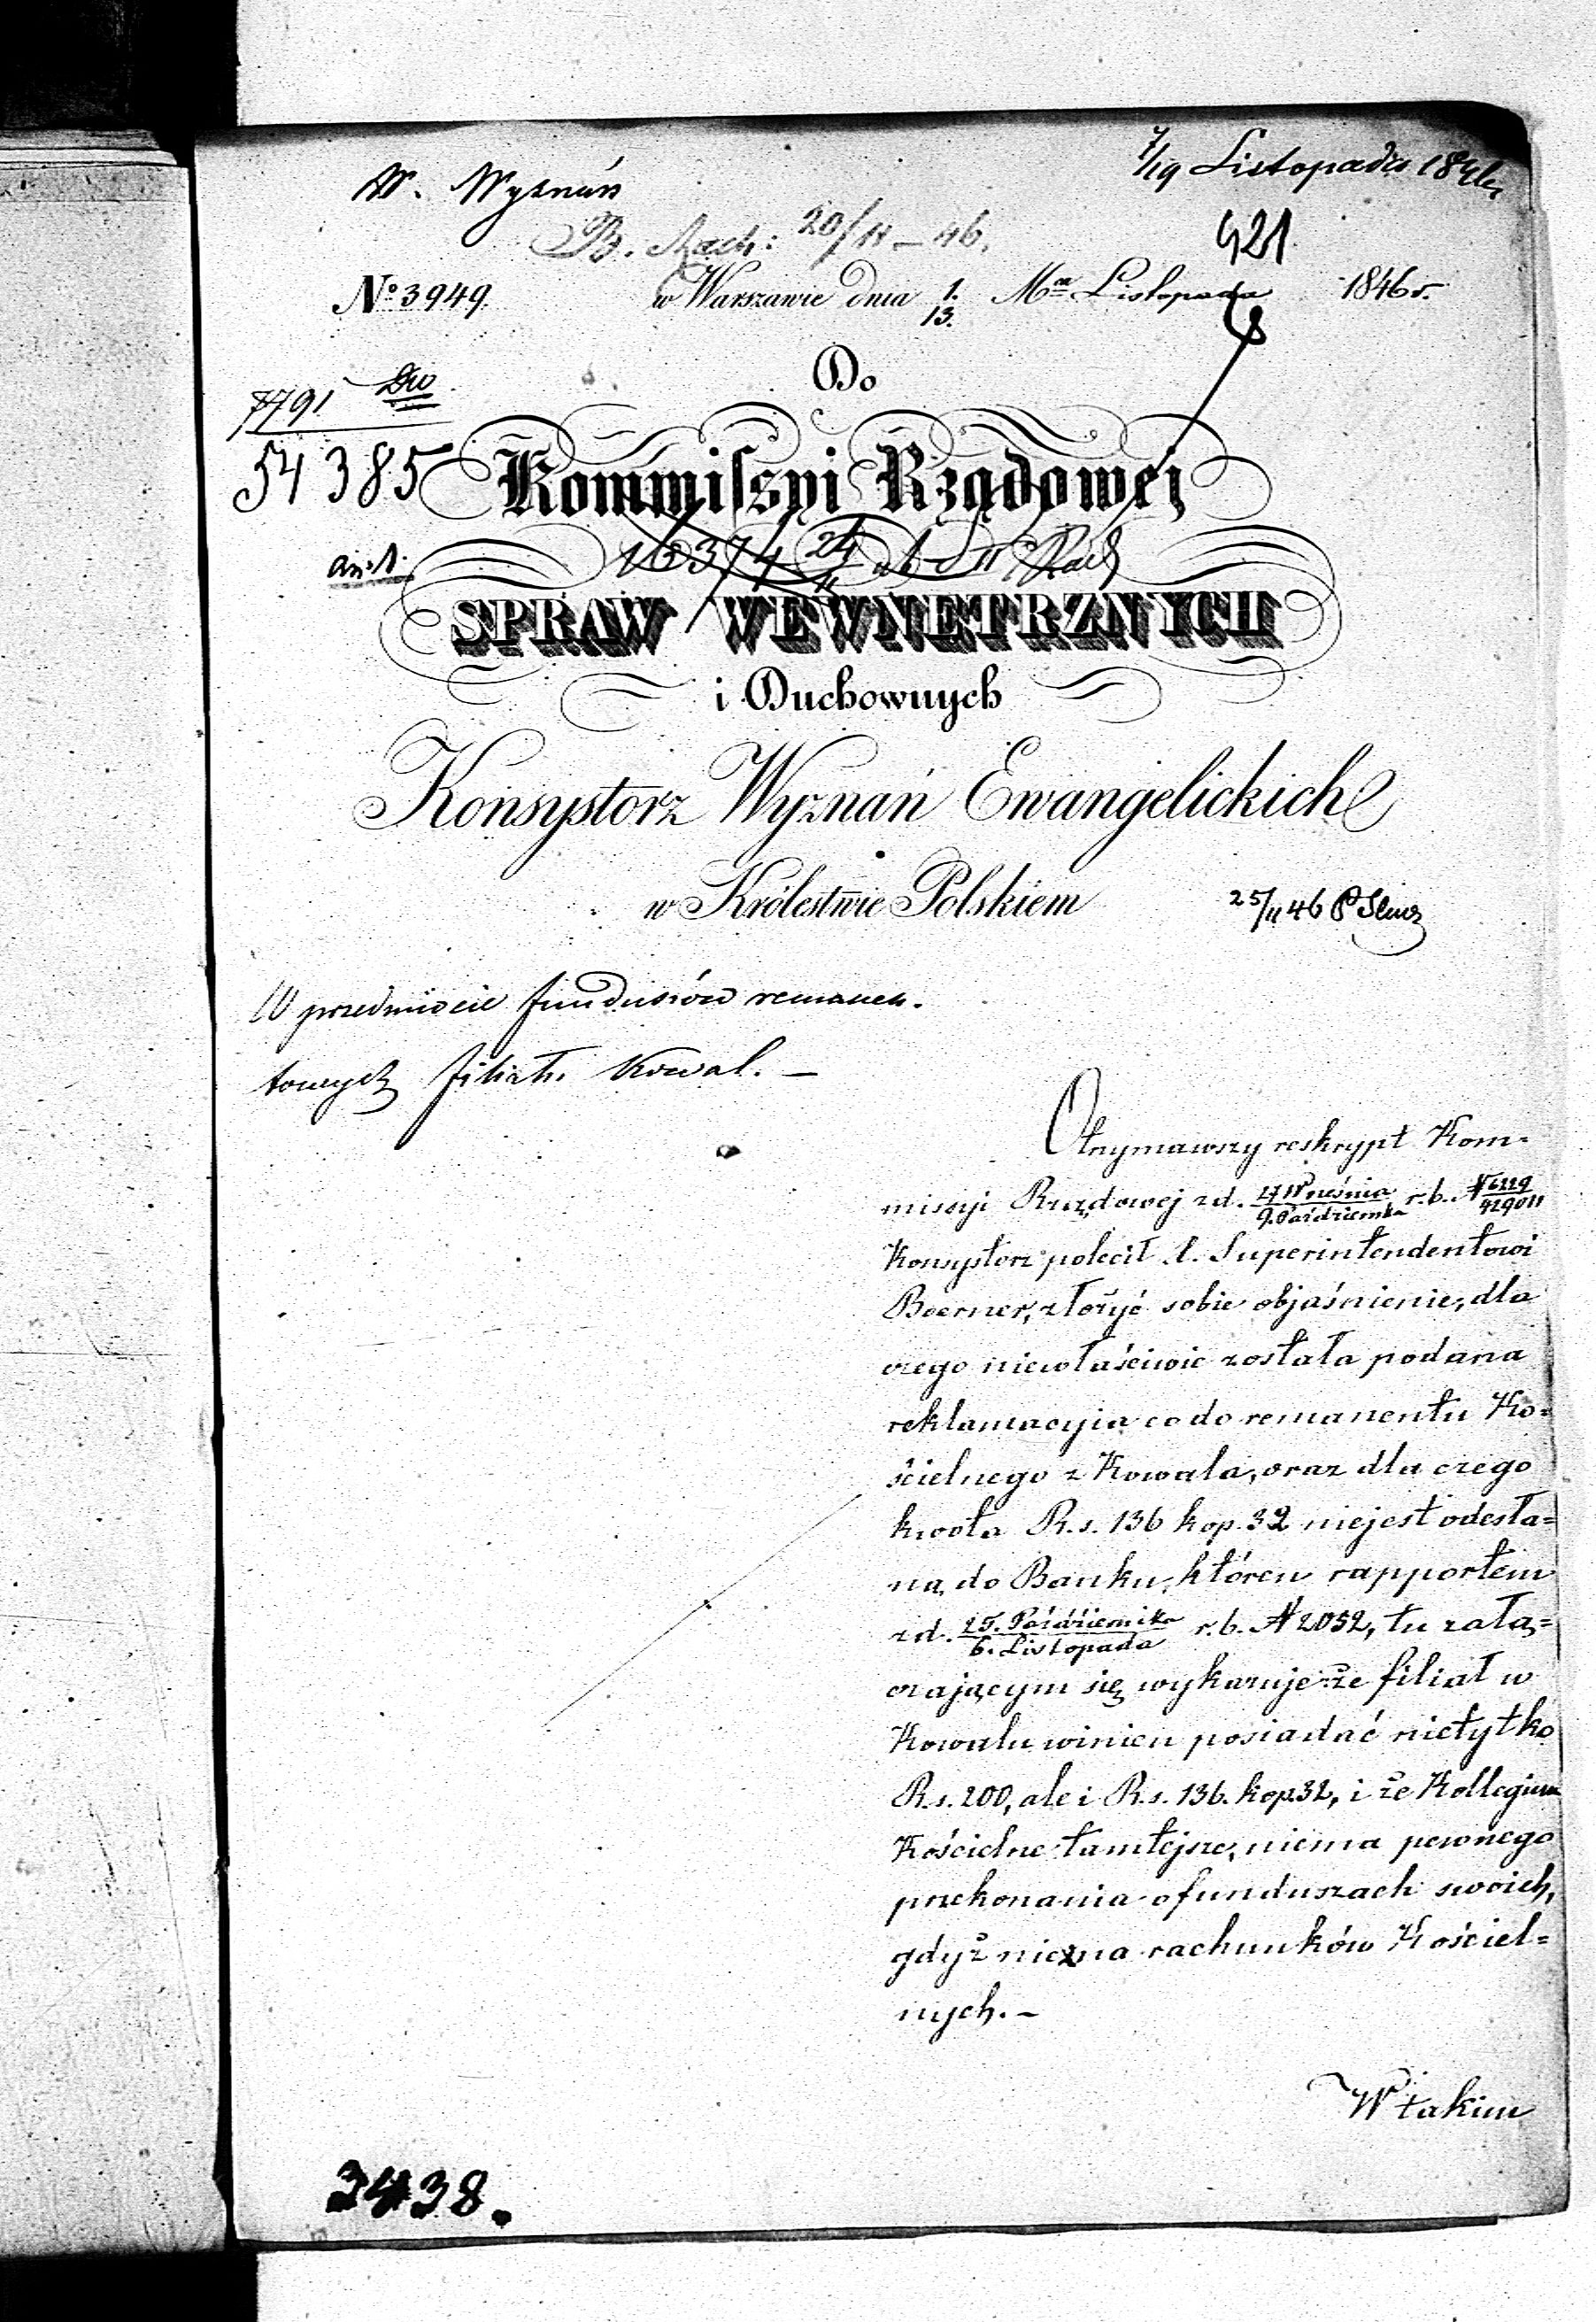 7/19 Listopada 1846
W. Wyznań
B. Rach: 20/11 – 46.
421
№ 3949. w Warszawie dnia 1./13. Mca Listopada 1846 r.
Do
7791 Dw
54385
Kommissyi Rządowej
16374 24/11
SPRAW WEWNĘTRZNYCH
i Duchownych
Konsystorz Wyznań Ewangelickich
w Królestwie Polskiem
25/11 46
W przedmiocie funduszów remanen-
towych filiału Kowal. –
Otrzymawszy reskrypt Kom-
missyi Rządowej z d. 27 Września/9. Październka r.b. №
Konsystorz polecił X. Superintendentowi
Boerner, złożyć sobie objaśnienie, dla
czego niewłaściwie została podana
reklamacyia co do remanentu Ko=
ścielnego z Kowala, oraz dla czego
kwota R.s. 136 kop. 32 niejest odesła=
na do Banku, któren rapportem
z d. 25. Październka/6. Listopada r.b. № 2052, tu załą=
czającym się wykazuje że filiał w
Kowalu winien posiadać nietylko
R.s. 200, ale i R.s. 136. kop. 32, i że Kollegium
Kościelne tamtejsze, niema pewnego
przekonania o funduszach swoich,
gdyż niezna rachunków Kościel=
nych. –
W takim
3438.